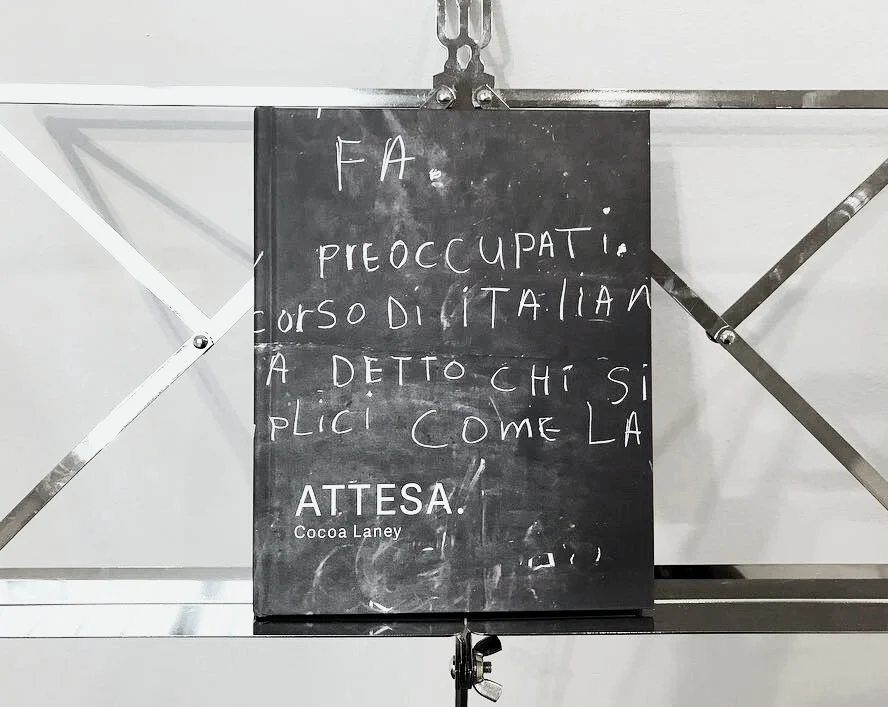 FA.
PREOCCUPATI.
corso Di iTALIAN
A DETTO CHi Si
PLICI COME LA
ATTESA.
Cocoa Laney